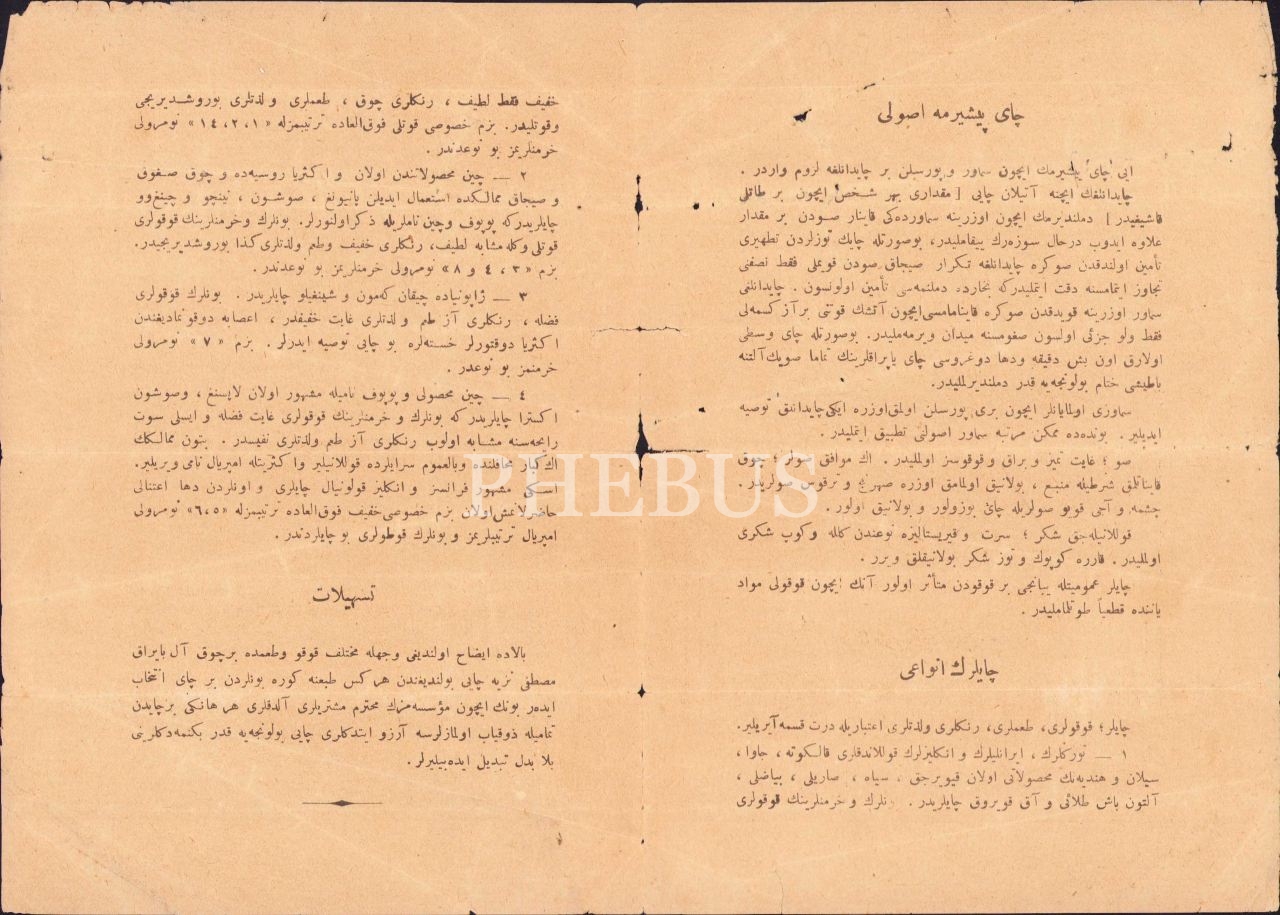 چای پیشیرمه اصولی
ایی چای پیشیرمك ایچون سماور و پورسلن بر چایدانلغه لزوم واردر .
چایدانلغك ایچنه آتیلان چایی [ مقداری بهر شخص ایچون بر طاتلی
قاشیغیدر ] دملندیرمك ایچون اوزرینه سماورده‌كی قاینار صودن بر مقدار
علاوه ایدوب درحال سوزه‌رك ییقاملیدر، بوصورتله چایك توزلردن تطهیری
تأمین اولندقدن صوكره چایدانلغه تكرار صیجاق صودن قویملی فقط نصفنی
تجاوز ایتمامسنه دقت ایتملیدركه بخارده دملنمه‌سی تأمین اولونسون . چایدانلغی
سماور اوزرینه قویدقدن صوكره قاینامامسی ایچون آتشك قوتنی بر آز كسمه‌لی
فقط ولو جزئی اولسون صغومسنه میدان ویرمه‌ملیدر . بوصورتله چای وسطی
اولارق اون بش دقیقه ودها دوغروسی چای یاپراقلرینك تماما صویك آلتنه
باطیشی ختام بولونجه‌یه قدر دملندیرلملیدر.
سماوری اولمایانلر ایچون بری پورسلن اولمق اوزره ایكی چایدانلق توصیه
ایدیلیر . بونده‌ده ممكن مرتبه سماور اصولنی تطبیق ایتملیدر .
صو ؛ غایت تمیز و براق و قوقوسز اولملیدر . اك موافق صولر ؛ چوق
قایناتلمق شرطیله منبع ، بولانیق اولمامق اوزره صهرنج و ترقوس صولریدر .
چشمه و آجی قویو صولریله چای بوزولور و بولانیق اولور .
قوللانیله‌جق شكر ؛ سرت و قیریستالیزه نوعندن كلله وكوپ شكری
اولملیدر . قارره كوپوك و توز شكر بولانیقلق ویرر .
چایلر عمومیتله یبانجی بر قوقودن متأثر اولور آنك ایچون قوقولی مواد
یاننده قطعیاً طوتلماملیدر .
چایلرك انواعی
چایلر؛ قوقولری، طعملری، رنكلری ولذتلری اعتباریله درت قسمه آیریلیر.
١ — توركلرك، ایرانلیلرك و انكلیزلرك قوللاندقلری قالكوته ، جاوا ،
سیلان و هندیه‌نك محصولاتی اولان قیویرجق ، سیاه ، صاریلی ، بیاضلی ،
آلتون باش طلائی و آق قویروق چایلریدر . بونلرك و خرمنلرینك قوقولری
خفیف فقط لطیف ، رنكلری چوق ، طعملری و لذتلری بوروشدیریجی
وقوتلیدر. بزم خصوصی قوتلی فوق‌العاده ترتیبمزله «١ ،٢ ،١٤» نومرولی
خرمنلریمز بو نوعدندر .
٢ — چین محصولاتندن اولان و اكثریا روسیه‌ده و چوق صغوق
و صیجاق ممالكده استعمال ایدیلن پانیونغ ، صوشون ، نینچو و چینغ‌وو
چایلریدركه پوپوف وچین ناملریله ذكر اولنورلر. بونلرك وخرمنلرینك قوقولری
قوتلی وكله مشابه لطیف، رنكلری خفیف وطعم ولذتلری كذا بوروشدیریجیدر.
بزم «٣، ٤ و ٨» نومرولی خرمنلریمز بو نوعدندر.
٣ — ژاپونیاده چیقان كه‌مون و شینفیلو چایلریدر . بونلرك قوقولری
فضله ، رنكلری آز طعم ولذتلری غایت خفیفدر ، اعصابه دوقونمادیغندن
اكثریا دوقتورلر خسته‌لره بو چایی توصیه ایدرلر . بزم «٧» نومرولی
خرمنمز بو نوعدر .
٤ — چین محصولی و پوپوف نامیله مشهور اولان لاپسنغ ، وصوشون
اكسترا چایلریدر كه بونلرك و خرمنلرینك قوقولری غایت فضله و ایسلی سوت
رایحه‌سنه مشابه اولوب رنكلری آز طعم ولذتلری نفیسدر . بتون ممالكك
اك كبار محافلنده وبالعموم سرایلرده قوللانیلیر واكثریتله امپریال نامی ویریلیر.
اسكی مشهور فرانسز و انكلیز قولونیال چایلری و اونلردن دها اعتنالی
حاضرلانمش اولان بزم خصوصی خفیف فوق‌العاده ترتیبمزله «٥ ،٦» نومرولی
امپریال ترتیبلریمز وبونلرك قوطولری بو چایلردندر.
تسهیلات
بالاده ایضاح اولندیغی وجهله مختلف قوقو وطعمده برچوق آل بایراق
مصطفی نزیه چایی بولندیغندن هركس طبعنه كوره بونلردن بر چای انتخاب
ایده‌ر بونك ایچون مؤسسه‌مزك محترم مشتریلری آلدقلری هر هانكی بر چایدن
تمامیله ذوقیاب اولمازلرسه آرزو ایتدكلری چایی بولونجه‌یه قدر بكنمه‌دكلرینی
بلا بدل تبدیل ایده‌بیلیرلر.
PHEBUS